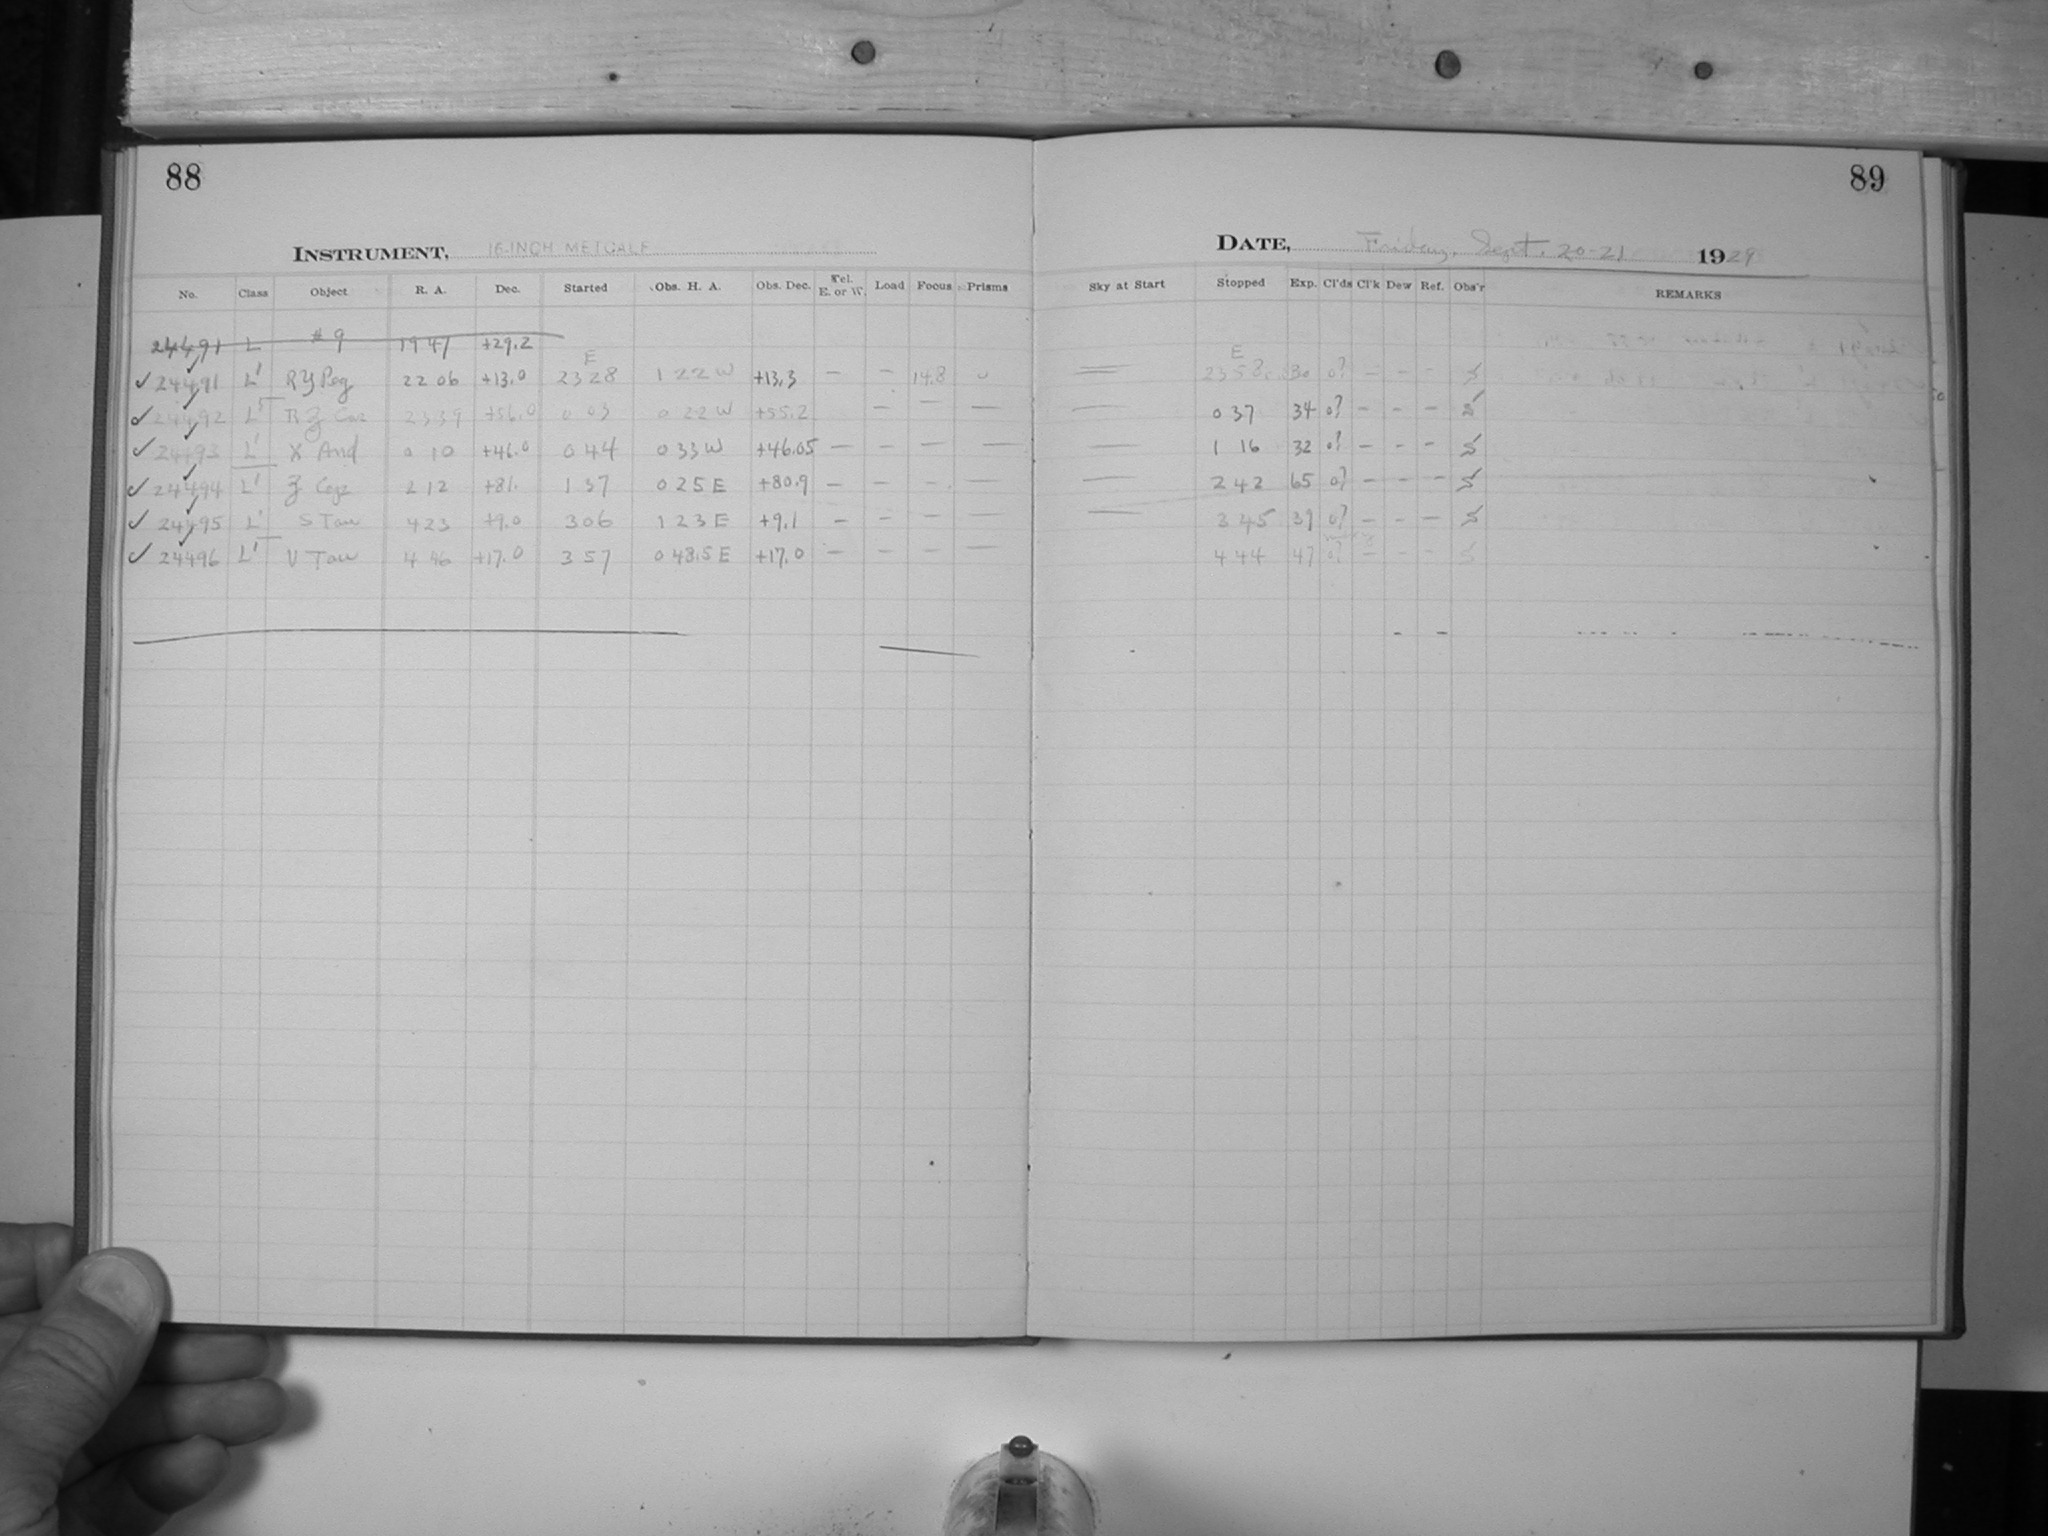 88
89
INSTRUMENT, 16-INCH METCALF
DATE, Friday, Sept. 20-21 1929
No. Class Object R. A. Dec. Started Obs. H. A. Obs. Dec. Tel. E. or W. Load Focus Prisms Sky at Start Stopped Exp. Cl'ds Cl'k Dew Ref. Obs'r REMARKS
24491 L #9 19 47 +29.2
✓ 24491 L' RY Peg 22 06 +13.0 E 23 28 1 22 W +13.3 — — 14.8 E 23 58 30 0? - - - S
✓ 24492 L' RZ Cas 23 39 +56.0 0 03 0 22 W +55.2 — — — — 0 37 34 0? - - - S
✓ 24493 L' X And 0 10 +46.0 0 44 0 33 W +46.05 — — — — — 1 16 32 0? - - - S
✓ 24494 L' Z Cep 2 12 +81. 1 37 0 25 E +80.9 — — — — — 2 42 65 0? - - - S
✓ 24495 L' S Tau 4 23 +9.0 3 06 1 23 E +9.1 — — — — — 3 45 39 0? - - - S
✓ 24496 L' V Tau 4 46 +17.0 3 57 0 48.5 E +17.0 — — — — 4 44 47 0? - - - S